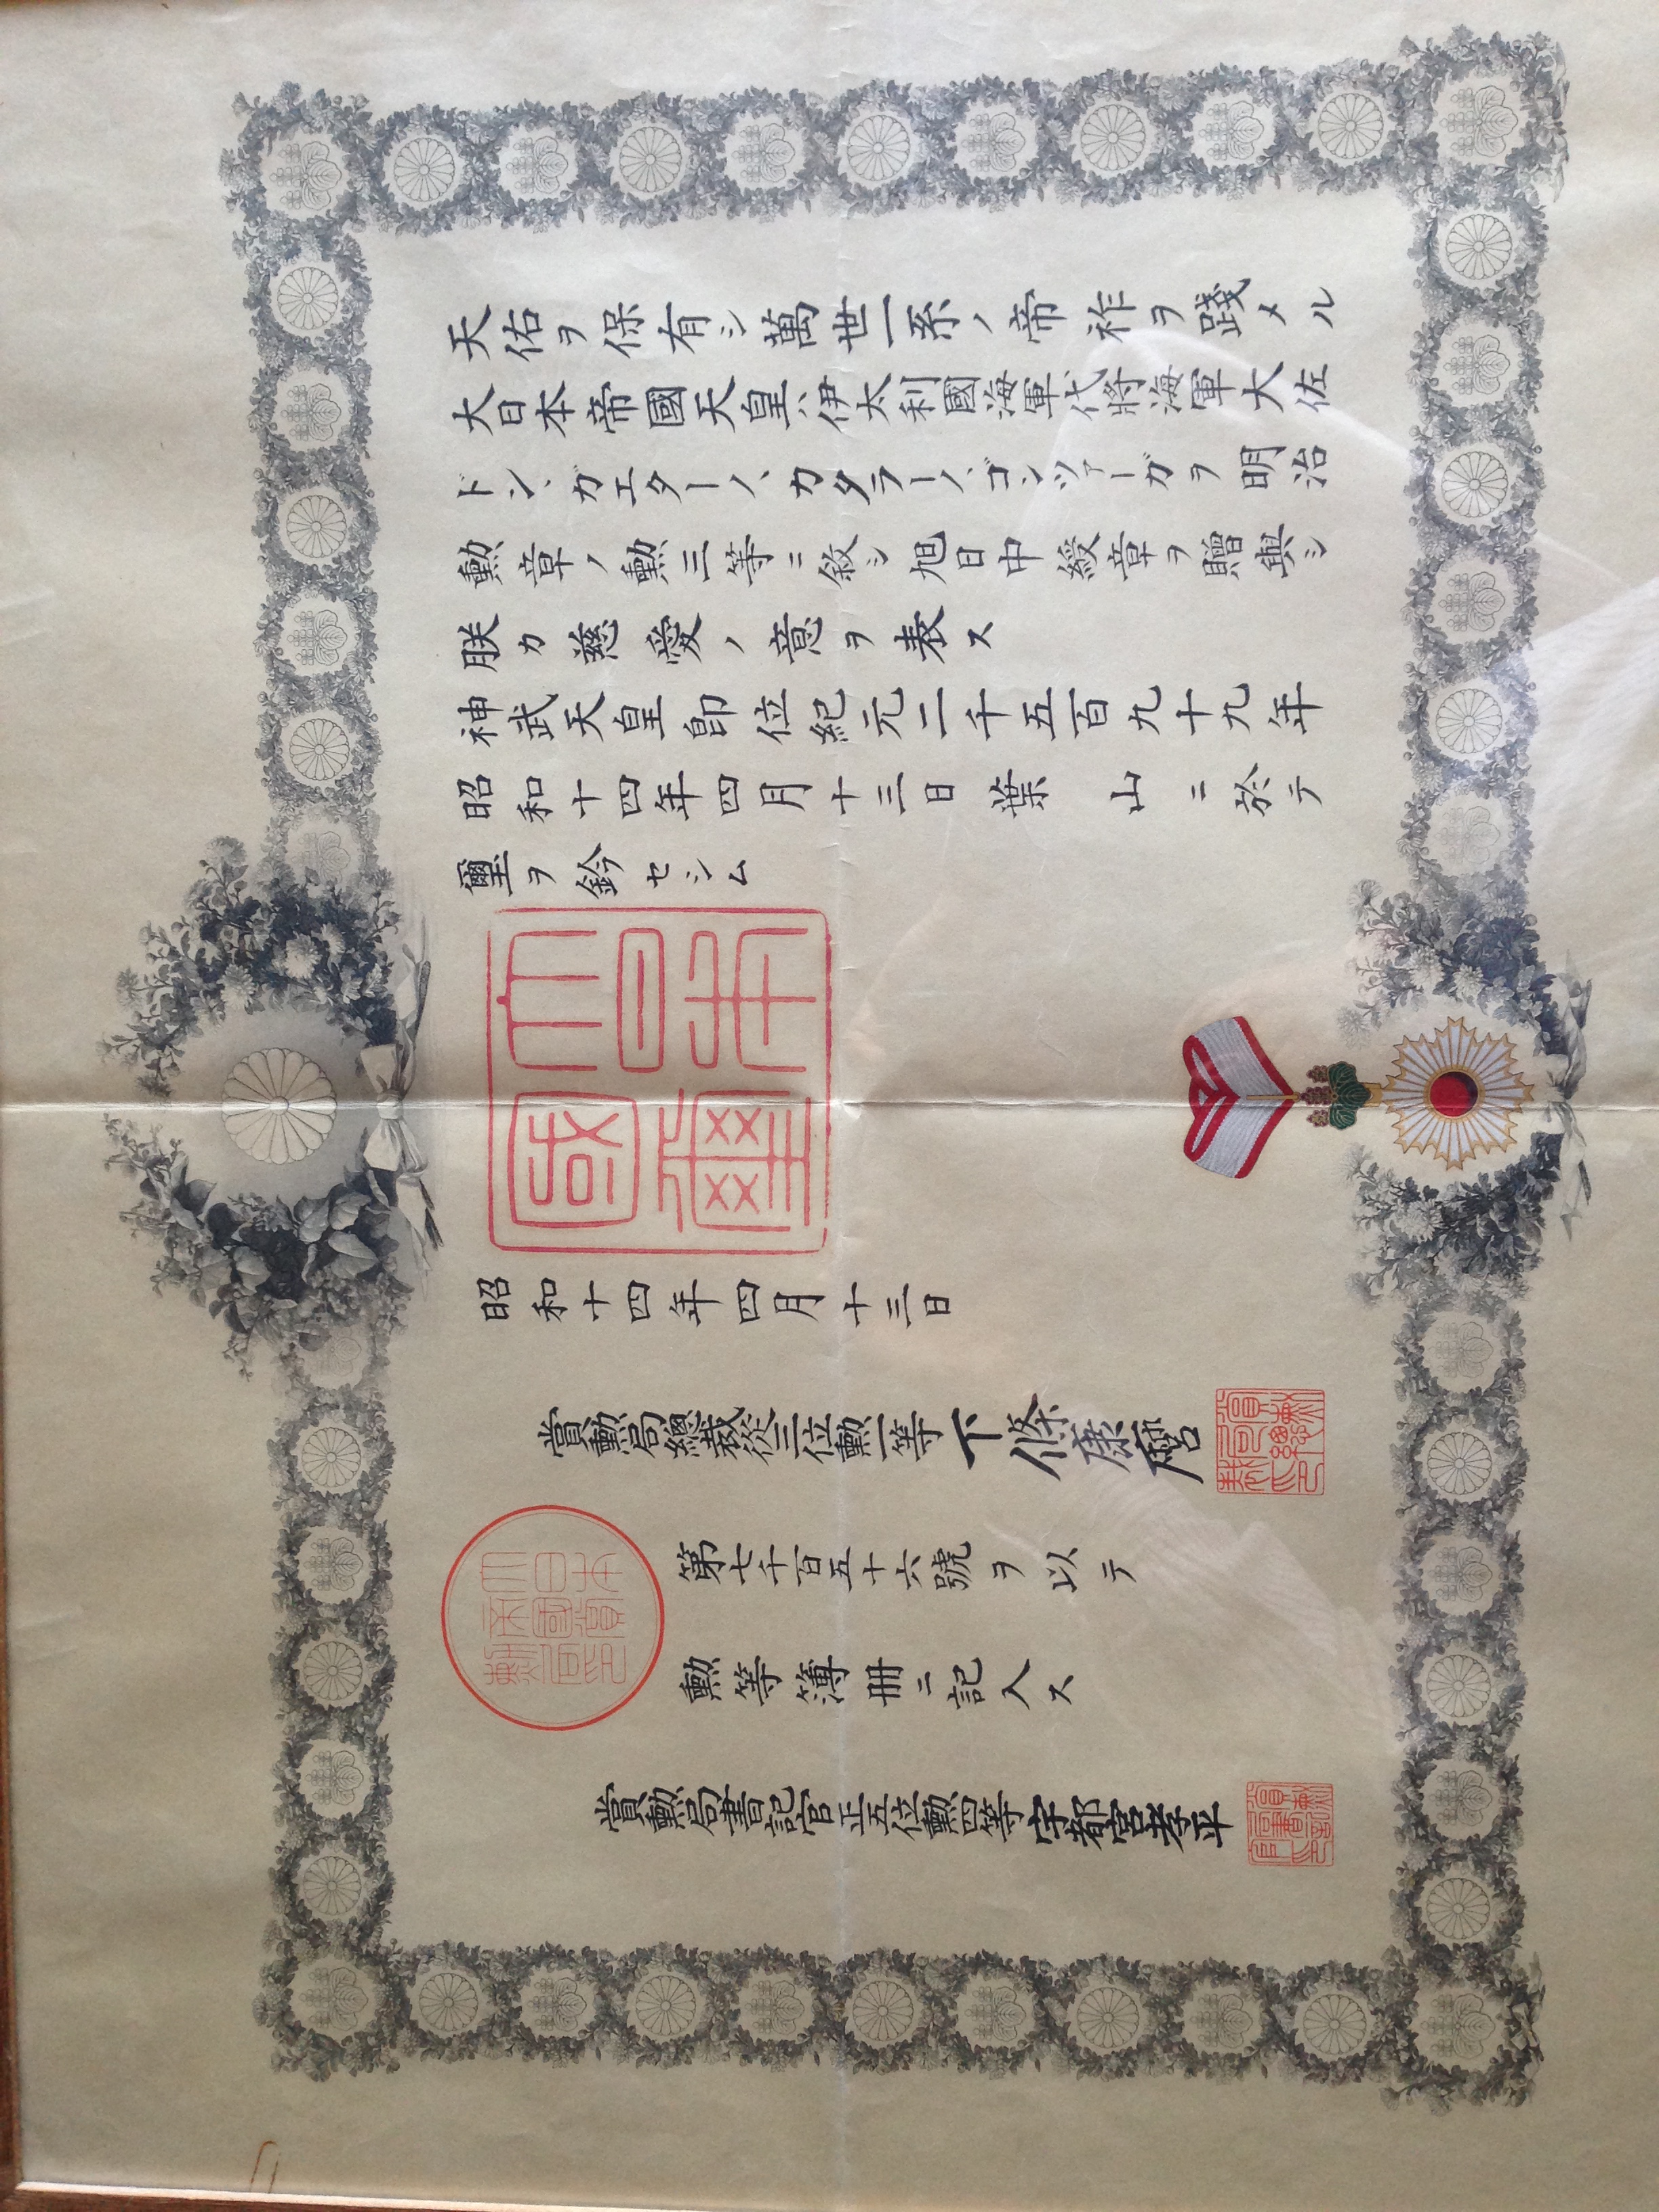 天佑ヲ保有シ萬世一系ノ帝祚ヲ踐メル
大日本帝國天皇ハ伊太利國海軍代將海軍大佐
ドン、ガエターノ、カタラーノ、ゴンツァーガヲ明治
勲章ノ勲三等ニ敘シ旭日中綬章ヲ贈與シ
朕カ慈愛ノ意ヲ表ス
神武天皇即位紀元二千五百九十九年
昭和十四年四月十三日葉山ニ於テ
璽ヲ鈐セシム
大日本
國璽
昭和十四年四月十三日
賞勲局總裁從三位勲一等下條康麿
賞勲局總裁之印
第七千百五十六號ヲ以テ
勲等簿册ニ記入ス
大日本帝國賞勲局印
賞勲局書記官正五位勲四等宇都宮孝平